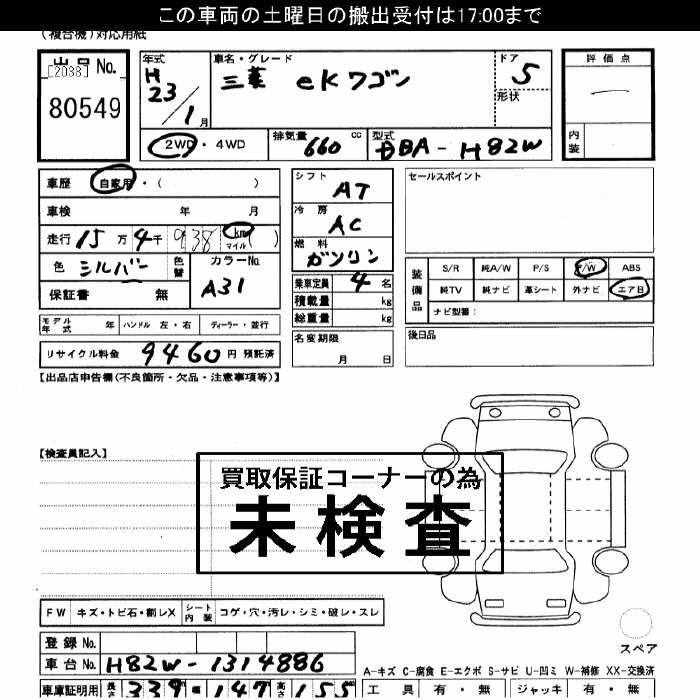 この車両の土曜日の搬出受付は17:00まで
(複合機)対応用紙
出品No.
[2038]
80549
年式 車名・グレード ドア 評価点
H 23/1月 三菱 eKワゴン 5 —
形状
2WD・4WD 排気量 660 cc 型式 DBA-H82W 内装
車歴 自家用・( )
車検 年 月
走行 15万4千938 km マイル ( )
色 シルバー 色替 カラーNo. A31
保証書 無
シフト AT
冷房 AC
燃料 ガソリン
乗車定員 4名
積載量 kg
総重量 kg
セールスポイント
装備品 S/R 純A/W P/S P/W ABS
純TV 純ナビ 革シート 外ナビ エアB
ナビ型番:
モデル年式 年 ハンドル 左・右 ディーラー・並行
名変期限 月 日
後日品
リサイクル料金 9460円 預託済
【出品店申告欄(不良箇所・欠品・注意事項等)】
【検査員記入】
買取保証コーナーの為
未検査
FW キズ・トビ石・割レX シート内装 コゲ・穴・汚レ・シミ・破レ・スレ
スペア
登録No.
車台No. H82W-1314886
A-キズ C-腐食 E-エクボ S-サビ U-凹ミ W-補修 XX-交換済
車庫証明用 長さ 339 147 高さ 155
工具 有・無 ジャッキ 有・無